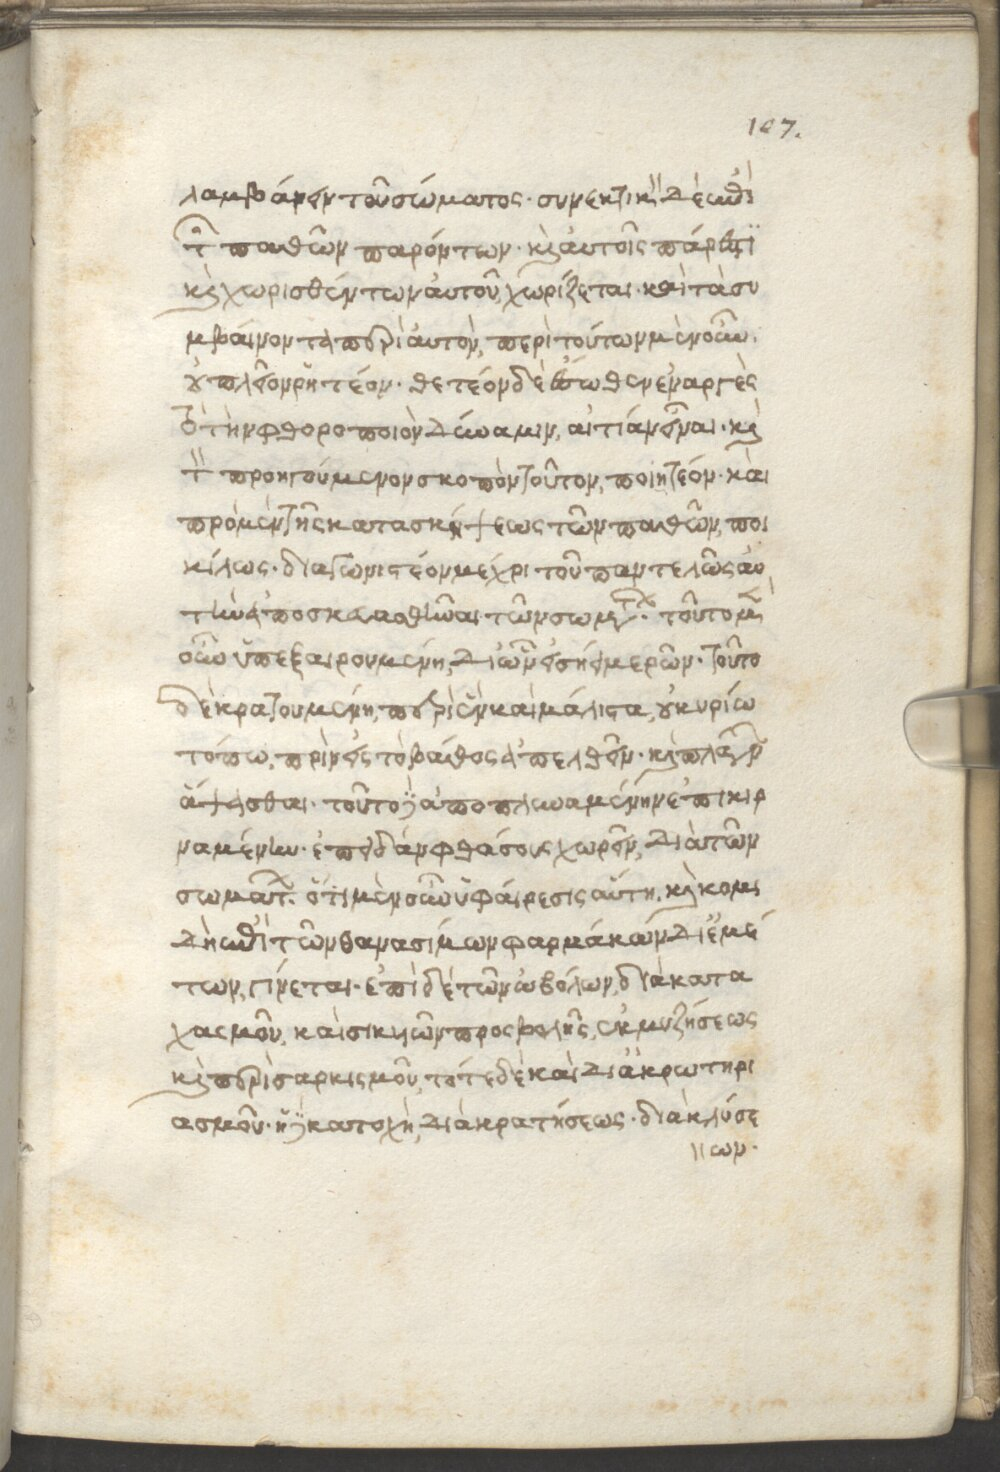 107.
λαμβάνειν τοῦ σώματος· συνεκτικὴ δὲ ἐπεὶ
τῶν παθῶν παρόντων· καὶ αὐτοῖς πάρεστι
καὶ χωρισθέντων αὐτοῦ, χωρίζεται· κατὰ τὰ συ
μβαίνοντα περὶ αὐτὸν, περὶ τούτων μὲν οὖν,
οὐ πλεῖον ῥητέον· θετέον δὲ ἔξωθεν ἐναργὲς
τὸ τὴν φθοροποιὸν δύναμιν, αἰτίαν εἶναι· καὶ
τὸν προηγούμενον σκοπὸν τοῦτον, ποιητέον· καὶ
πρὸ μὲν τῆς κατασκήψεως τῶν παθῶν, ποι
κίλως· διαγωνιστέον μέχρι τοῦ παντελῶς αὐ
τὴν ἀποσκευασθῆναι τῶν σωμάτων· τοῦτο μὲν
οὖν ὑπεξαιρουμένη, δι' ὧν εἰσῄει μερῶν· τοῦτο
δὲ κρατουμένη, περὶ ἓν καὶ μάλιστα, οὐ κυρίω
τόπω, πρὶν εἰς τὸ βάθος ἀπελθεῖν· καὶ πλειόνων
ἅψασθαι· τοῦτο δὲ ἀποπλυναμένην ἐπικιρ
ναμένην· ἐπειδὰν φθάσους χωρεῖν, διὰ τῶν
σωμάτων. ὅτι μὲν οὖν ὑφαίρεσις αὕτη, καὶ κομι
δὴ ἐπὶ τῶν θανασίμων φαρμάκων δι' ἐμέ
των, γίνεται· ἐπὶ δὲ τῶν ἰοβόλων, διὰ κατα
χασμοῦ, καὶ σικυῶν προσβολῆς, ἐκμυζήσεως
καὶ περισαρκισμοῦ, τότε δὲ καὶ δι' ἀκρωτηρι
ασμοῦ· ἡ δὲ κατοχὴ, διακρατήσεως· διακλύσε
ων·